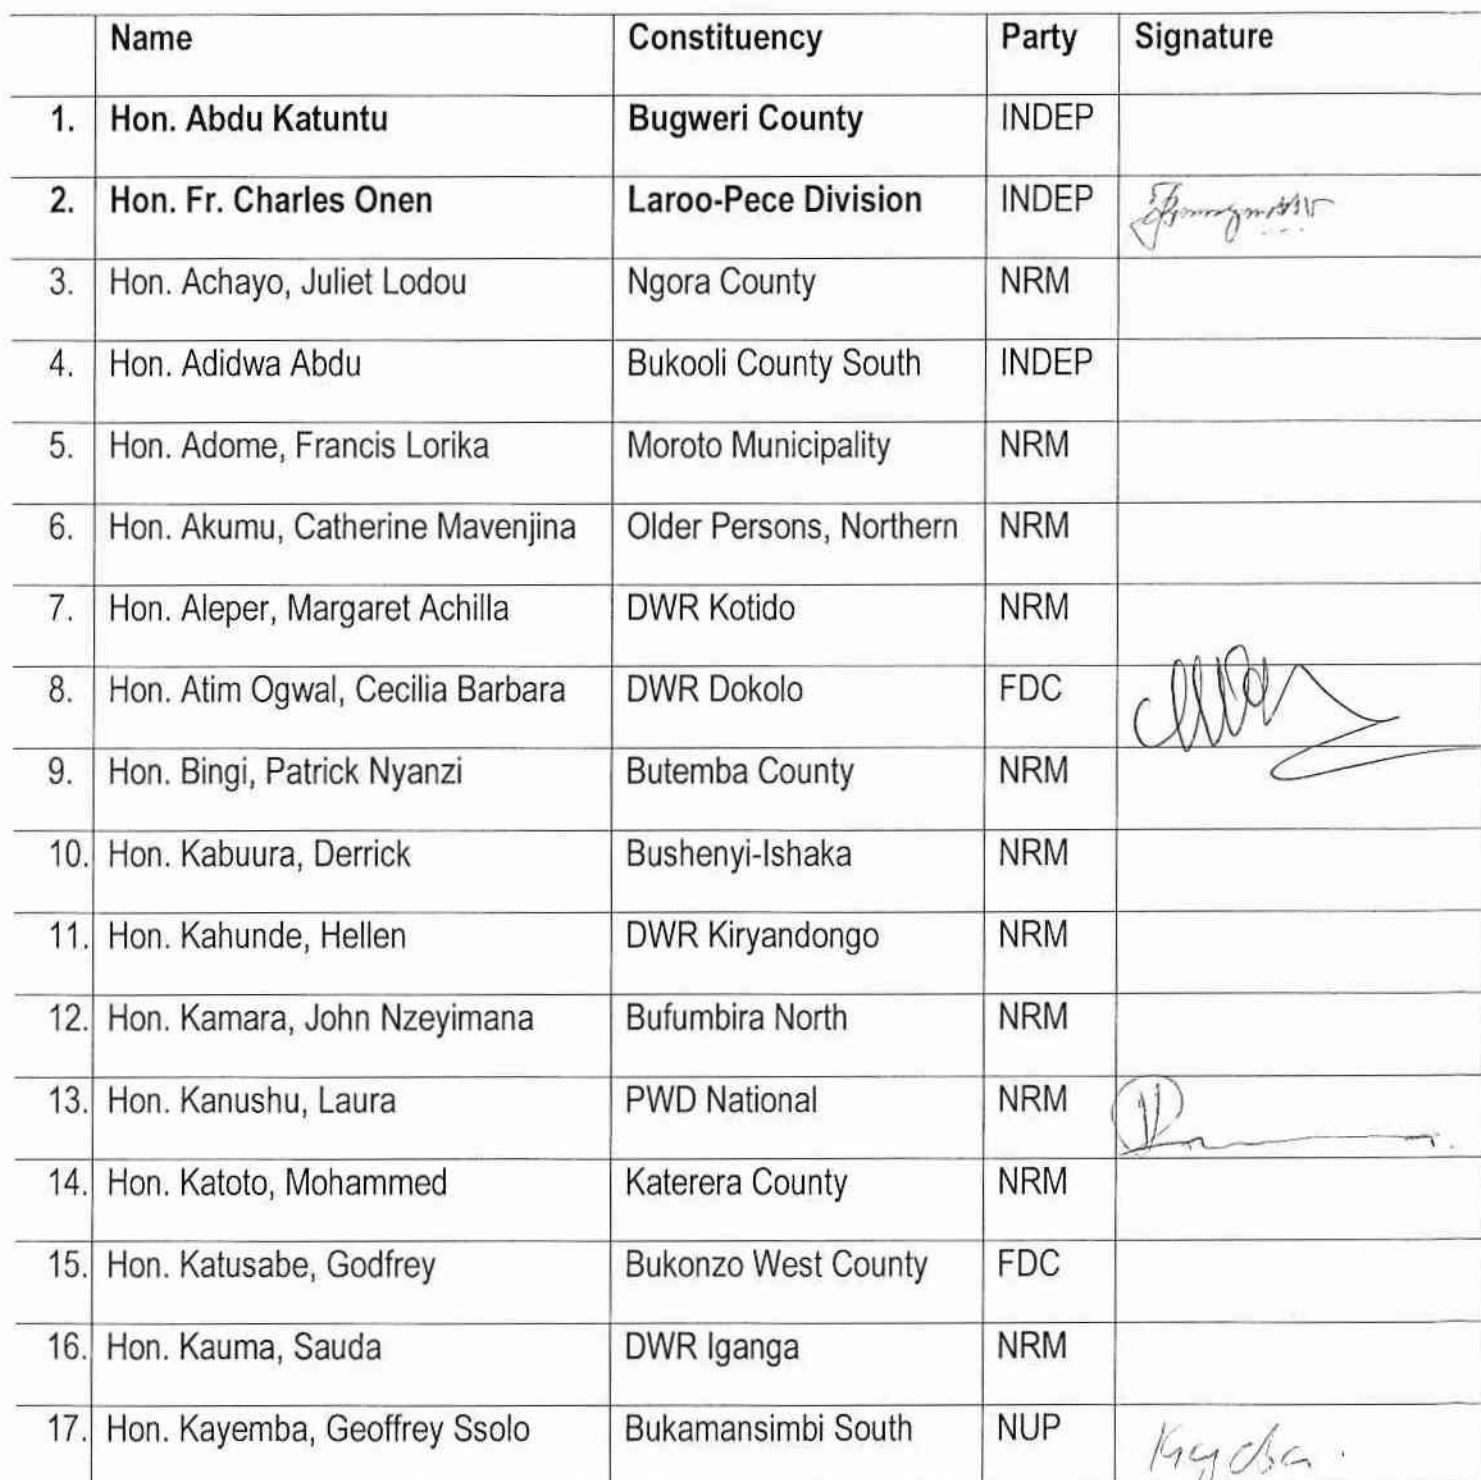 Name Constituency Party Signature
1. Hon. Abdu Katuntu Bugweri County INDEP
2. Hon. Fr. Charles Onen Laroo-Pece Division INDEP
3. Hon. Achayo, Juliet Lodou Ngora County NRM
4. Hon. Adidwa Abdu Bukooli County South INDEP
5. Hon. Adome, Francis Lorika Moroto Municipality NRM
6. Hon. Akumu, Catherine Mavenjina Older Persons, Northern NRM
7. Hon. Aleper, Margaret Achilla DWR Kotido NRM
8. Hon. Atim Ogwal, Cecilia Barbara DWR Dokolo FDC
9. Hon. Bingi, Patrick Nyanzi Butemba County NRM
10. Hon. Kabuura, Derrick Bushenyi-Ishaka NRM
11. Hon. Kahunde, Hellen DWR Kiryandongo NRM
12. Hon. Kamara, John Nzeyimana Bufumbira North NRM
13. Hon. Kanushu, Laura PWD National NRM
14. Hon. Katoto, Mohammed Katerera County NRM
15. Hon. Katusabe, Godfrey Bukonzo West County FDC
16. Hon. Kauma, Sauda DWR Iganga NRM
17. Hon. Kayemba, Geoffrey Ssolo Bukamansimbi South NUP